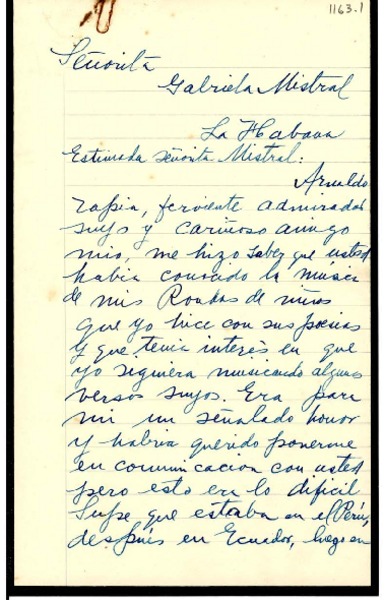 1163.1
Señorita
Gabriela Mistral
La Habana
Estimada señorita Mistral:
Arnaldo
Tapia, ferviente admirador
suyo y cariñoso amigo
mio, me hizo saber que usted
habia conocido la música
de mis Rondas de niños
que yo hice con sus poesias
y que tenia interés en que
yo siguiera musicando algunos
versos suyos. Era para
mi un señalado honor
y habria querido ponerme
en comunicacion con usted
pero esto era lo dificil
Supe que estaba en el Perú,
después en Ecuador, luego en